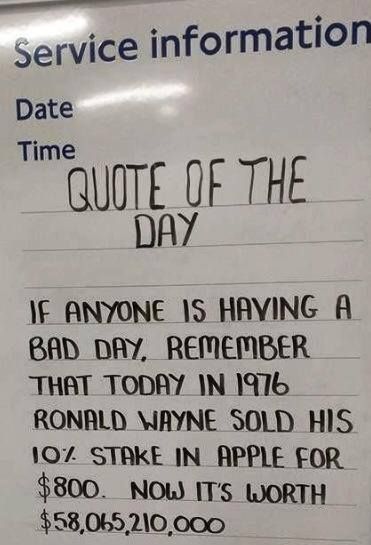 Service information
Date
Time
QUOTE OF THE
DAY
IF ANYONE IS HAVING A
BAD DAY, REMEMBER
THAT TODAY IN 1976
RONALD WAYNE SOLD HIS
10% STAKE IN APPLE FOR
$800. NOW IT'S WORTH
$58,065,210,000